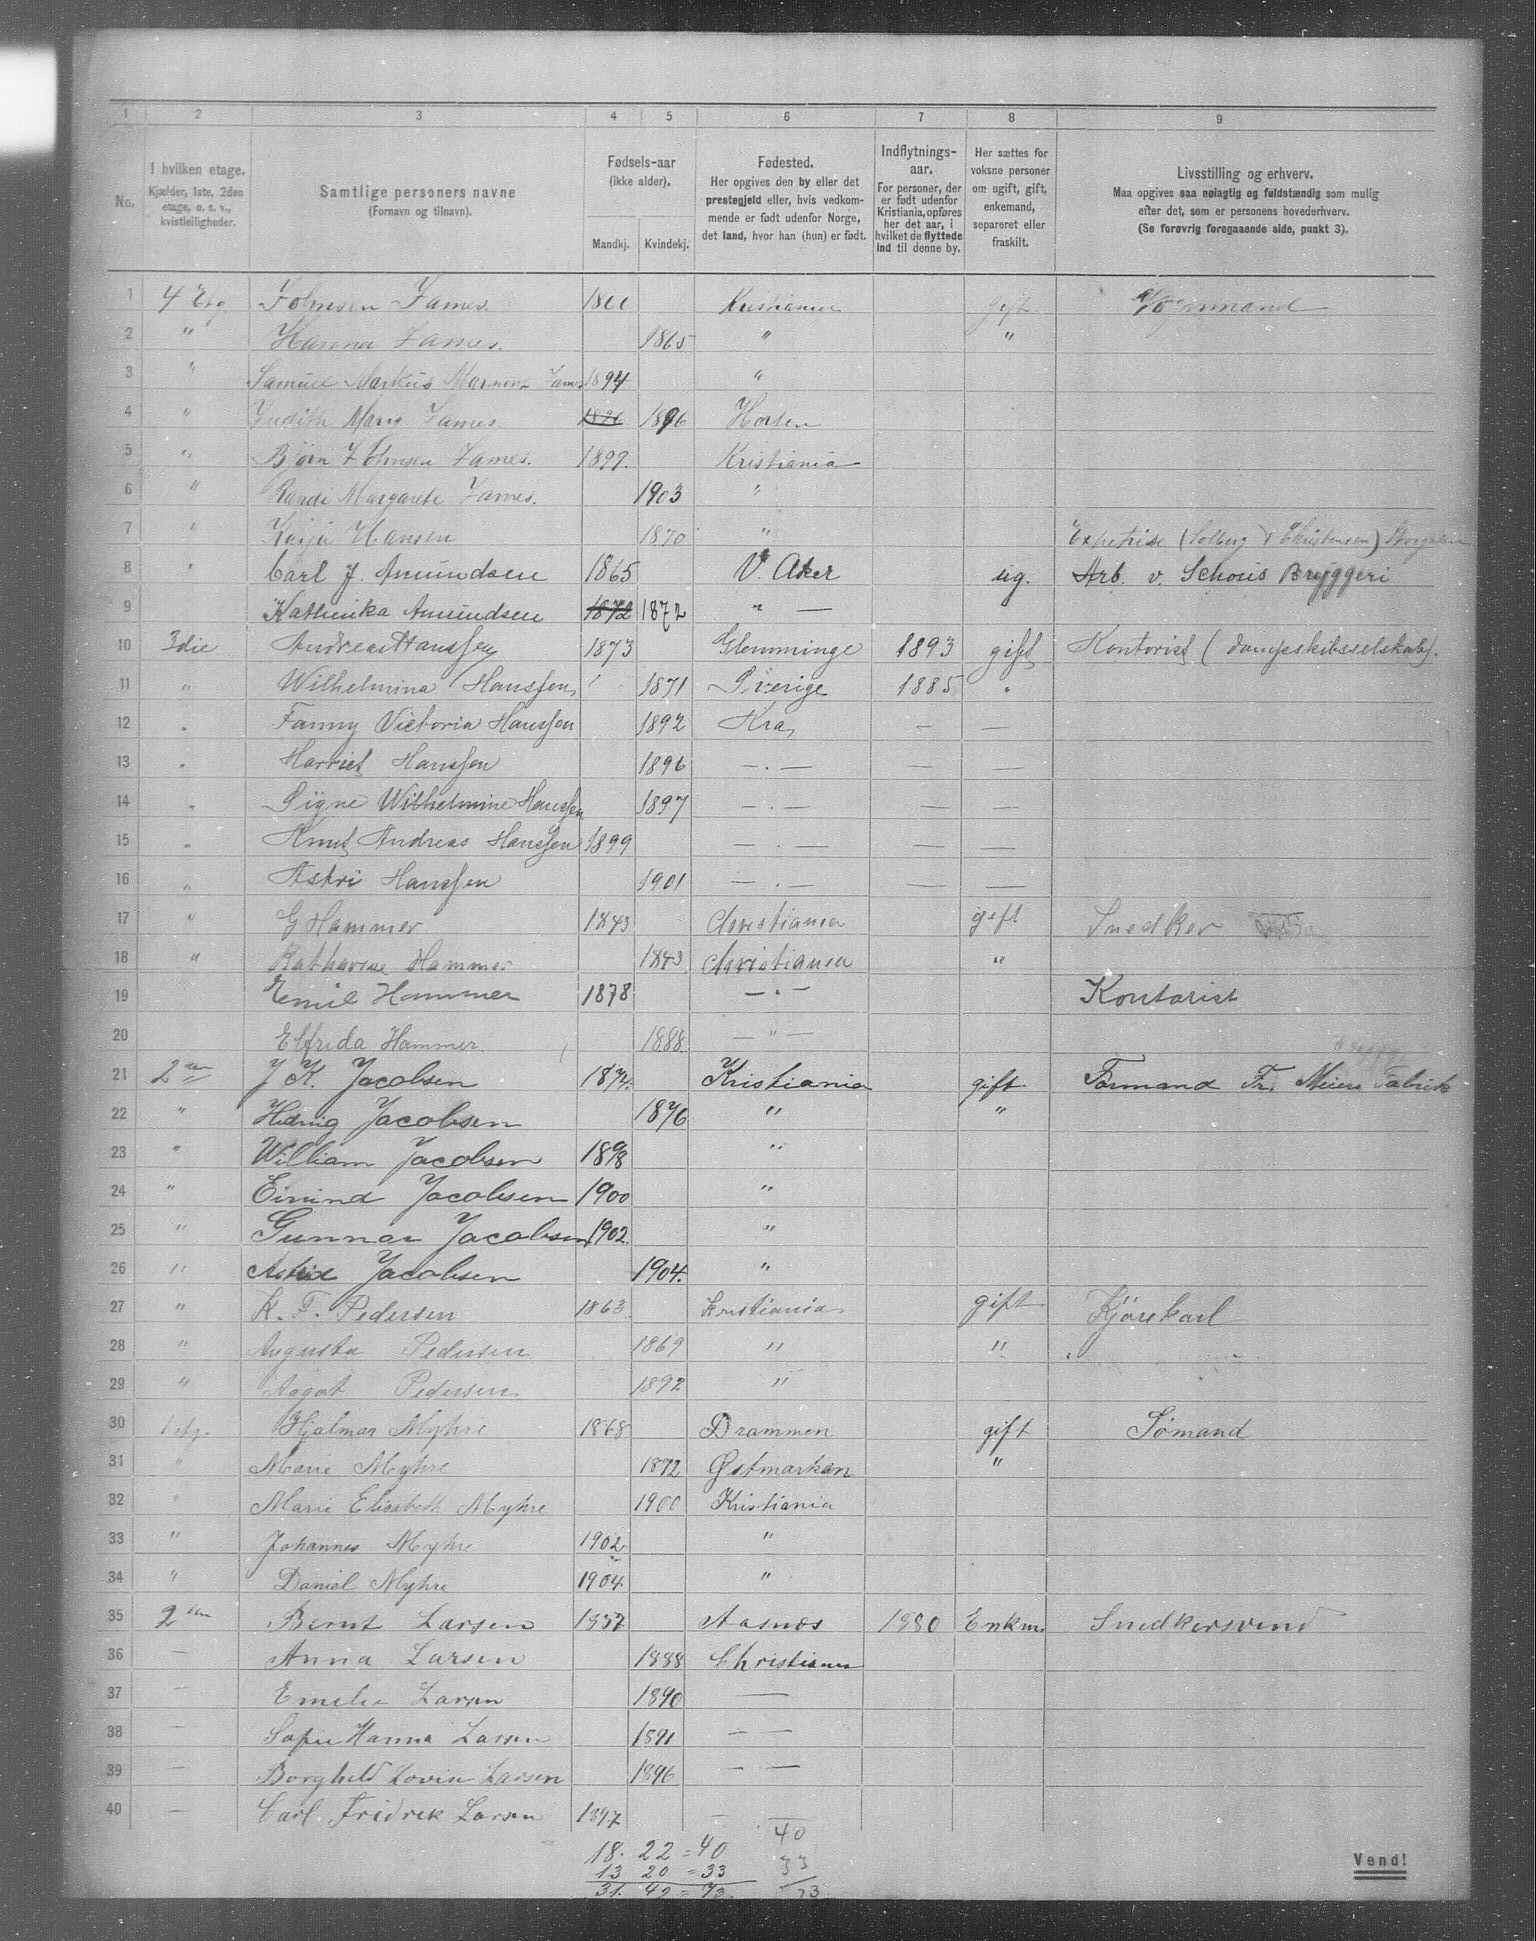 1 2 3 4 5 6 7 8 9
No.
I hvilken etage.
Kjælder, 1ste, 2den
etage, o. s. v.,
kvistleiligheder.
Samtlige personers navne
(Fornavn og tilnavn).
Fødsels-aar
(ikke alder).
Mandkj. Kvindekj.
Fødested.
Her opgives den by eller det
prestegjeld eller, hvis vedkom-
mende er født udenfor Norge,
det land, hvor han (hun) er født.
Indflytnings-
aar.
For personer, der
er født udenfor
Kristiania, opføres
her det aar, i
hvilket de flyttede
ind til denne by.
Her sættes for
voksne personer
om ugift, gift,
enkemand,
separeret eller
fraskilt.
Livsstilling og erhverv.
Maa opgives saa nøiagtig og fuldstændig som mulig
efter det, som er personens hovederhverv.
(Se forøvrig foregaaende side, punkt 3).
1 4 Etg. Johnsen James. Kristiania gift.
2 " Hanna James. 1865 " "
3 " Samuel Markus James 1894 "
4 " Judith Maria James. 1896 Horten
5 " Bjørn Johnsen James. 1899. Kristiania
6 " Randi Margarete James. 1903 "
7 " Kaija Hansen 1870 " (Solberg & Christensen)
8 " Carl J. Amundsen 1865 V. Aker ug. Arb. v. Schous Bryggeri
9 Kathinka Amundsen 1872 1872 " —
10 3die Andreas Hanssen 1873 Glemminge 1893 gift Kontorist (Dampskibsselskab).
11 " Wilhelmina Hanssen 1871 Sverige 1885 "
12 " Fanny Victoria Hanssen 1892 Kra, — —
13 " Harriet Hanssen 1896 — . — — —
14 " Signe Wilhelmine Hanssen 1897 — . — — —
15 " Knut Andreas Hanssen 1899 — . — — —
16 " Astri Hanssen 1901 — . — — —
17 " G Hammer 1843 Christiania gift Snedker
18 " Katharine Hammer 1843 Christiania "
19 Emil Hammer 1878 — " — Kontorist
20 Elfrida Hammer. 1888. " —
21 2den J. K. Jacobsen 1874. Kristiania gift Formand Fr. Meiers Fabrik
22 " Hedvig Jacobsen 1876 " "
23 " William Jacobsen 1898 "
24 " Eivind Jacobsen 1900 "
25 " Gunnar Jacobsen 1902. "
26 " Astrid Jacobsen 1904. "
27 " K. F. Pedersen 1863 Kristiania gift Kjørekarl
28 " Augusta Pedersen 1869 " "
29 " Aagot Pedersen. 1892 "
30 1 etg. Hjalmar Myhre 1868 Drammen gift Sømand
31 " Marie Myhre 1872 Østmarkan "
32 " Marie Elisabeth Myhre 1900 Kristiania
33 " Johannes Myhre 1902 "
34 " Daniel Myhre 1904 "
35 2den Bernt Larsen 1857 Aasnes 1880 Enkm. Snedkersvend
36 — Anna Larsen 1888 Christiania
37 — Emelie Larsen 1890 —
38 — Sofie Hanna Larsen 1891 — —
39 — Borghild Lovise Larsen 1896 — —
40 — Carl Fridrek Larsen 1897 — —
18. 22 = 40 40
13 20 = 33 33
31. 42 = 73. 73
Vend!